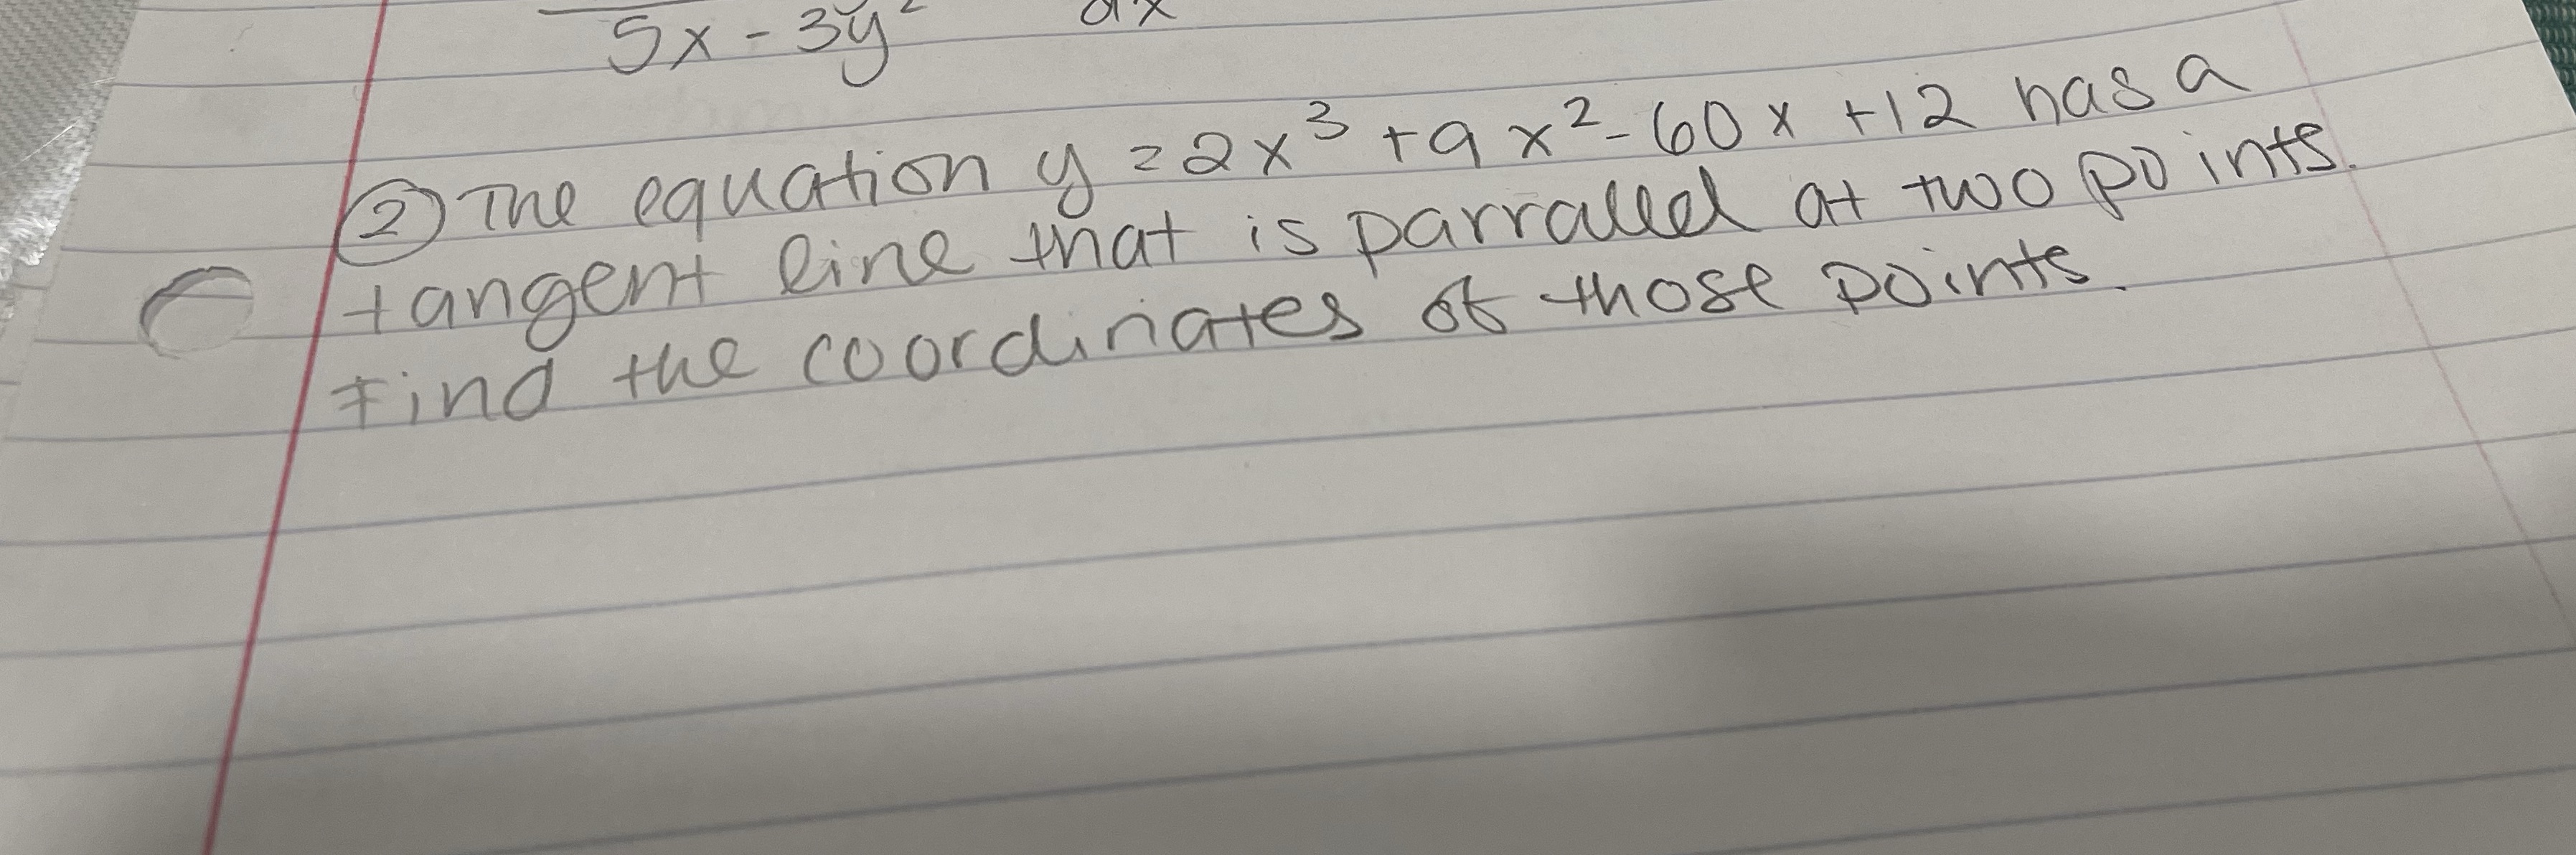 5x - 3y² dx
② The equation y = 2x³ + 9x² - 60x + 12 has a
tangent line that is parralled at two points.
Find the coordinates of those points.